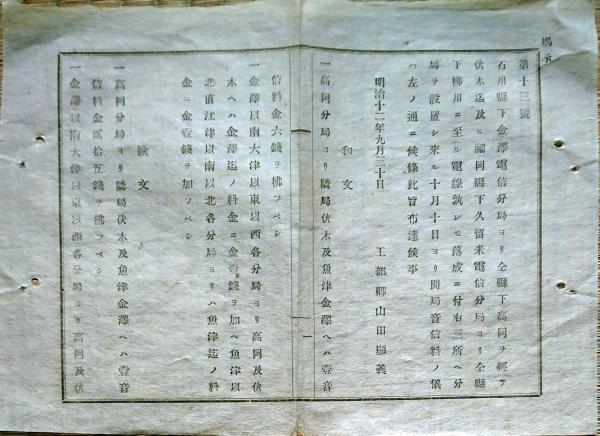 掲示
第十三號
石川縣下金澤電信分局ヨリ仝縣下高岡ヲ經テ
伏木迄及ヒ福岡縣下久留米電信分局ヨリ仝縣
下柳川ニ至ル電線孰レモ落成ニ付右三所ヘ分
局ヲ設置シ來ル十月十日ヨリ開局音信料ノ儀
ハ左ノ通ニ候條此旨布達候事
明治十二年九月三十日
工部卿山田顯義
和文
一高岡分局ヨリ隣局伏木及魚津金澤ヘハ壹音
信料金六錢ヲ拂フベシ
一金澤以南大津以東以西各分局ヨリ高岡及伏
木ヘハ金澤迄ノ料金ニ金壹錢ヲ加ヘ魚津以
北直江津以南以北各分局ヨリハ魚津迄ノ料
金ニ金壹錢ヲ加フベシ
歐文
一高岡分局ヨリ隣局伏木及魚津金澤ヘハ壹音
信料金貳拾五錢ヲ拂フベシ
一金澤以南大津以東以西各分局ヨリ高岡及伏